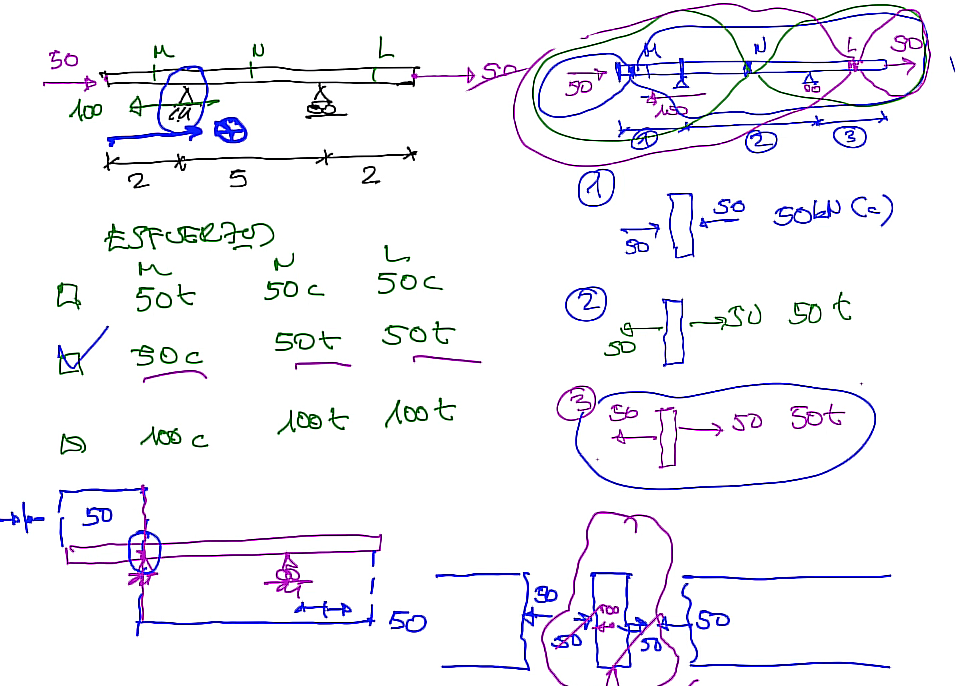 M N L
50 50
100
2 5 2
ESFUERZO
M N L
50t 50c 50c
50c 50t 50t
100c 100t 100t
50
50
M N L
50 50
100
1 2 3
1
50 50 50kN (c)
2
50 50 50t
3
50 50 50t
50 50 100 50 50